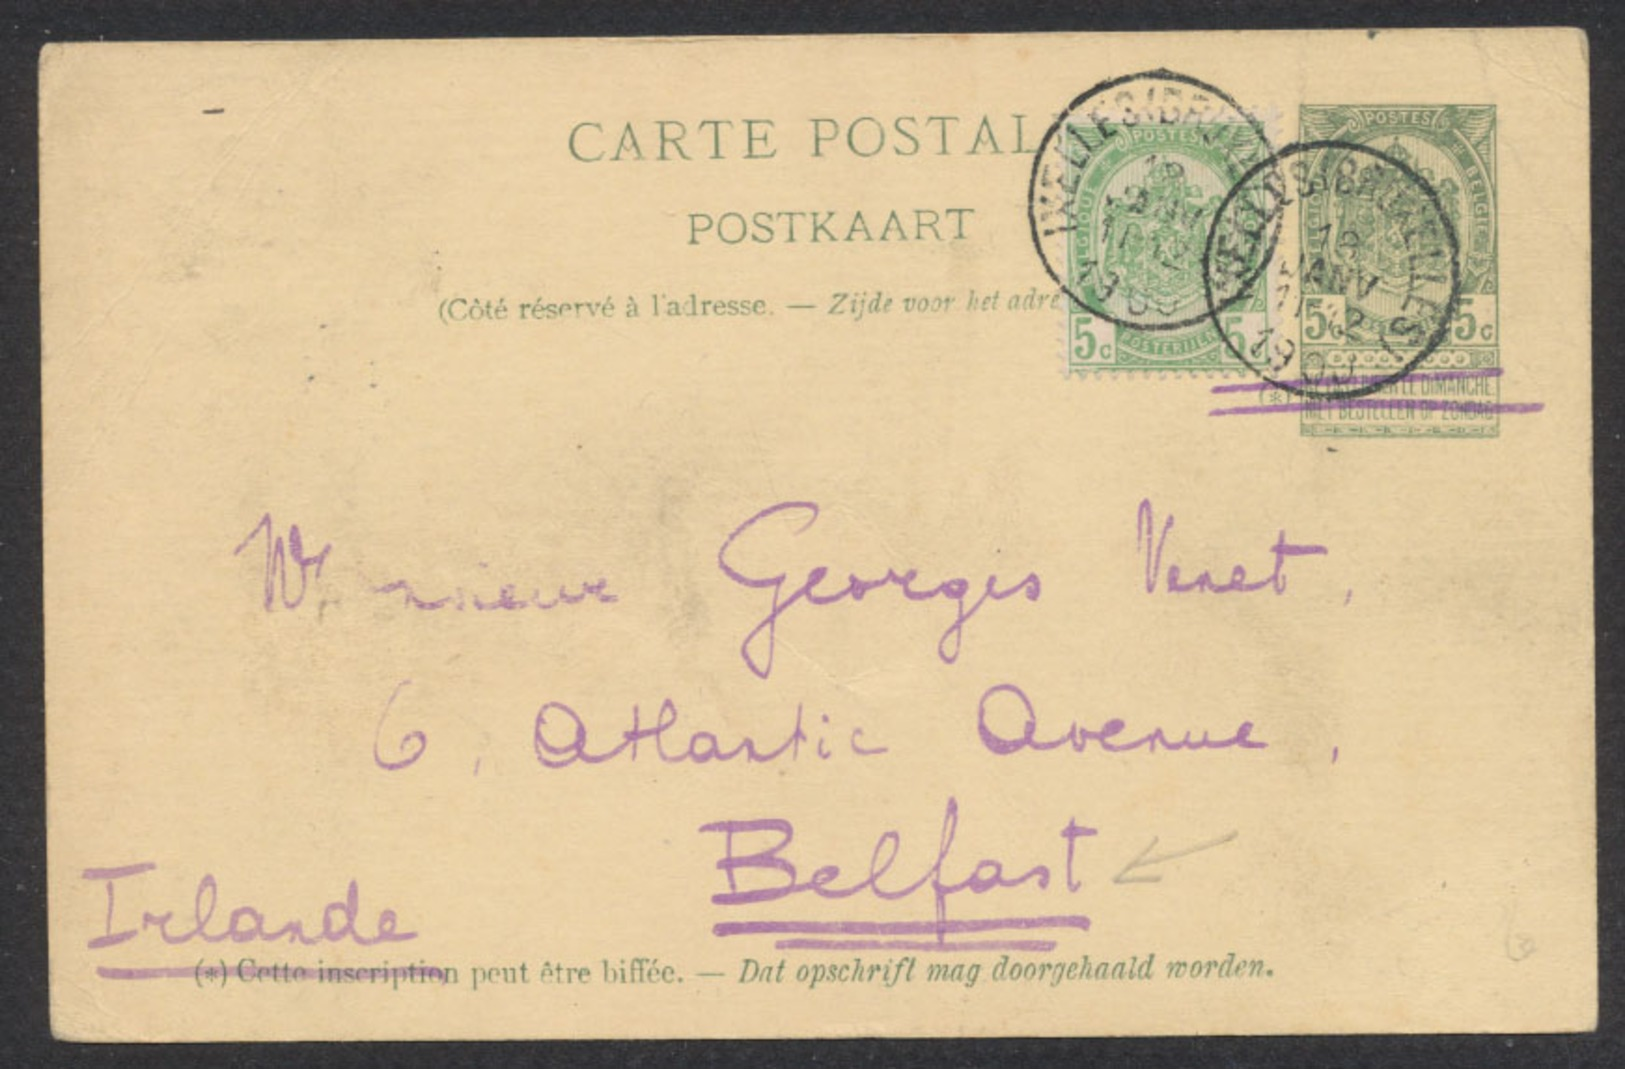 CARTE POSTAL
POSTKAART
(Côté réservé à l'adresse. — Zijde voor het adre
POSTES
5c 5
POSTERIJEN
IXELLES (BRUX
JANV
11-12
1900
POSTES
BELGIE
5c 5c
IXELLES (BRUXELLES)
JANV
11-12
1900
(*) LE DIMANCHE
NIET BESTELLEN OP ZONDAG
Monsieur Georges Venet,
6, Atlantic Avenue,
Belfast
Irlande
(*) Cette inscription peut être biffée. — Dat opschrift mag doorgehaald worden.